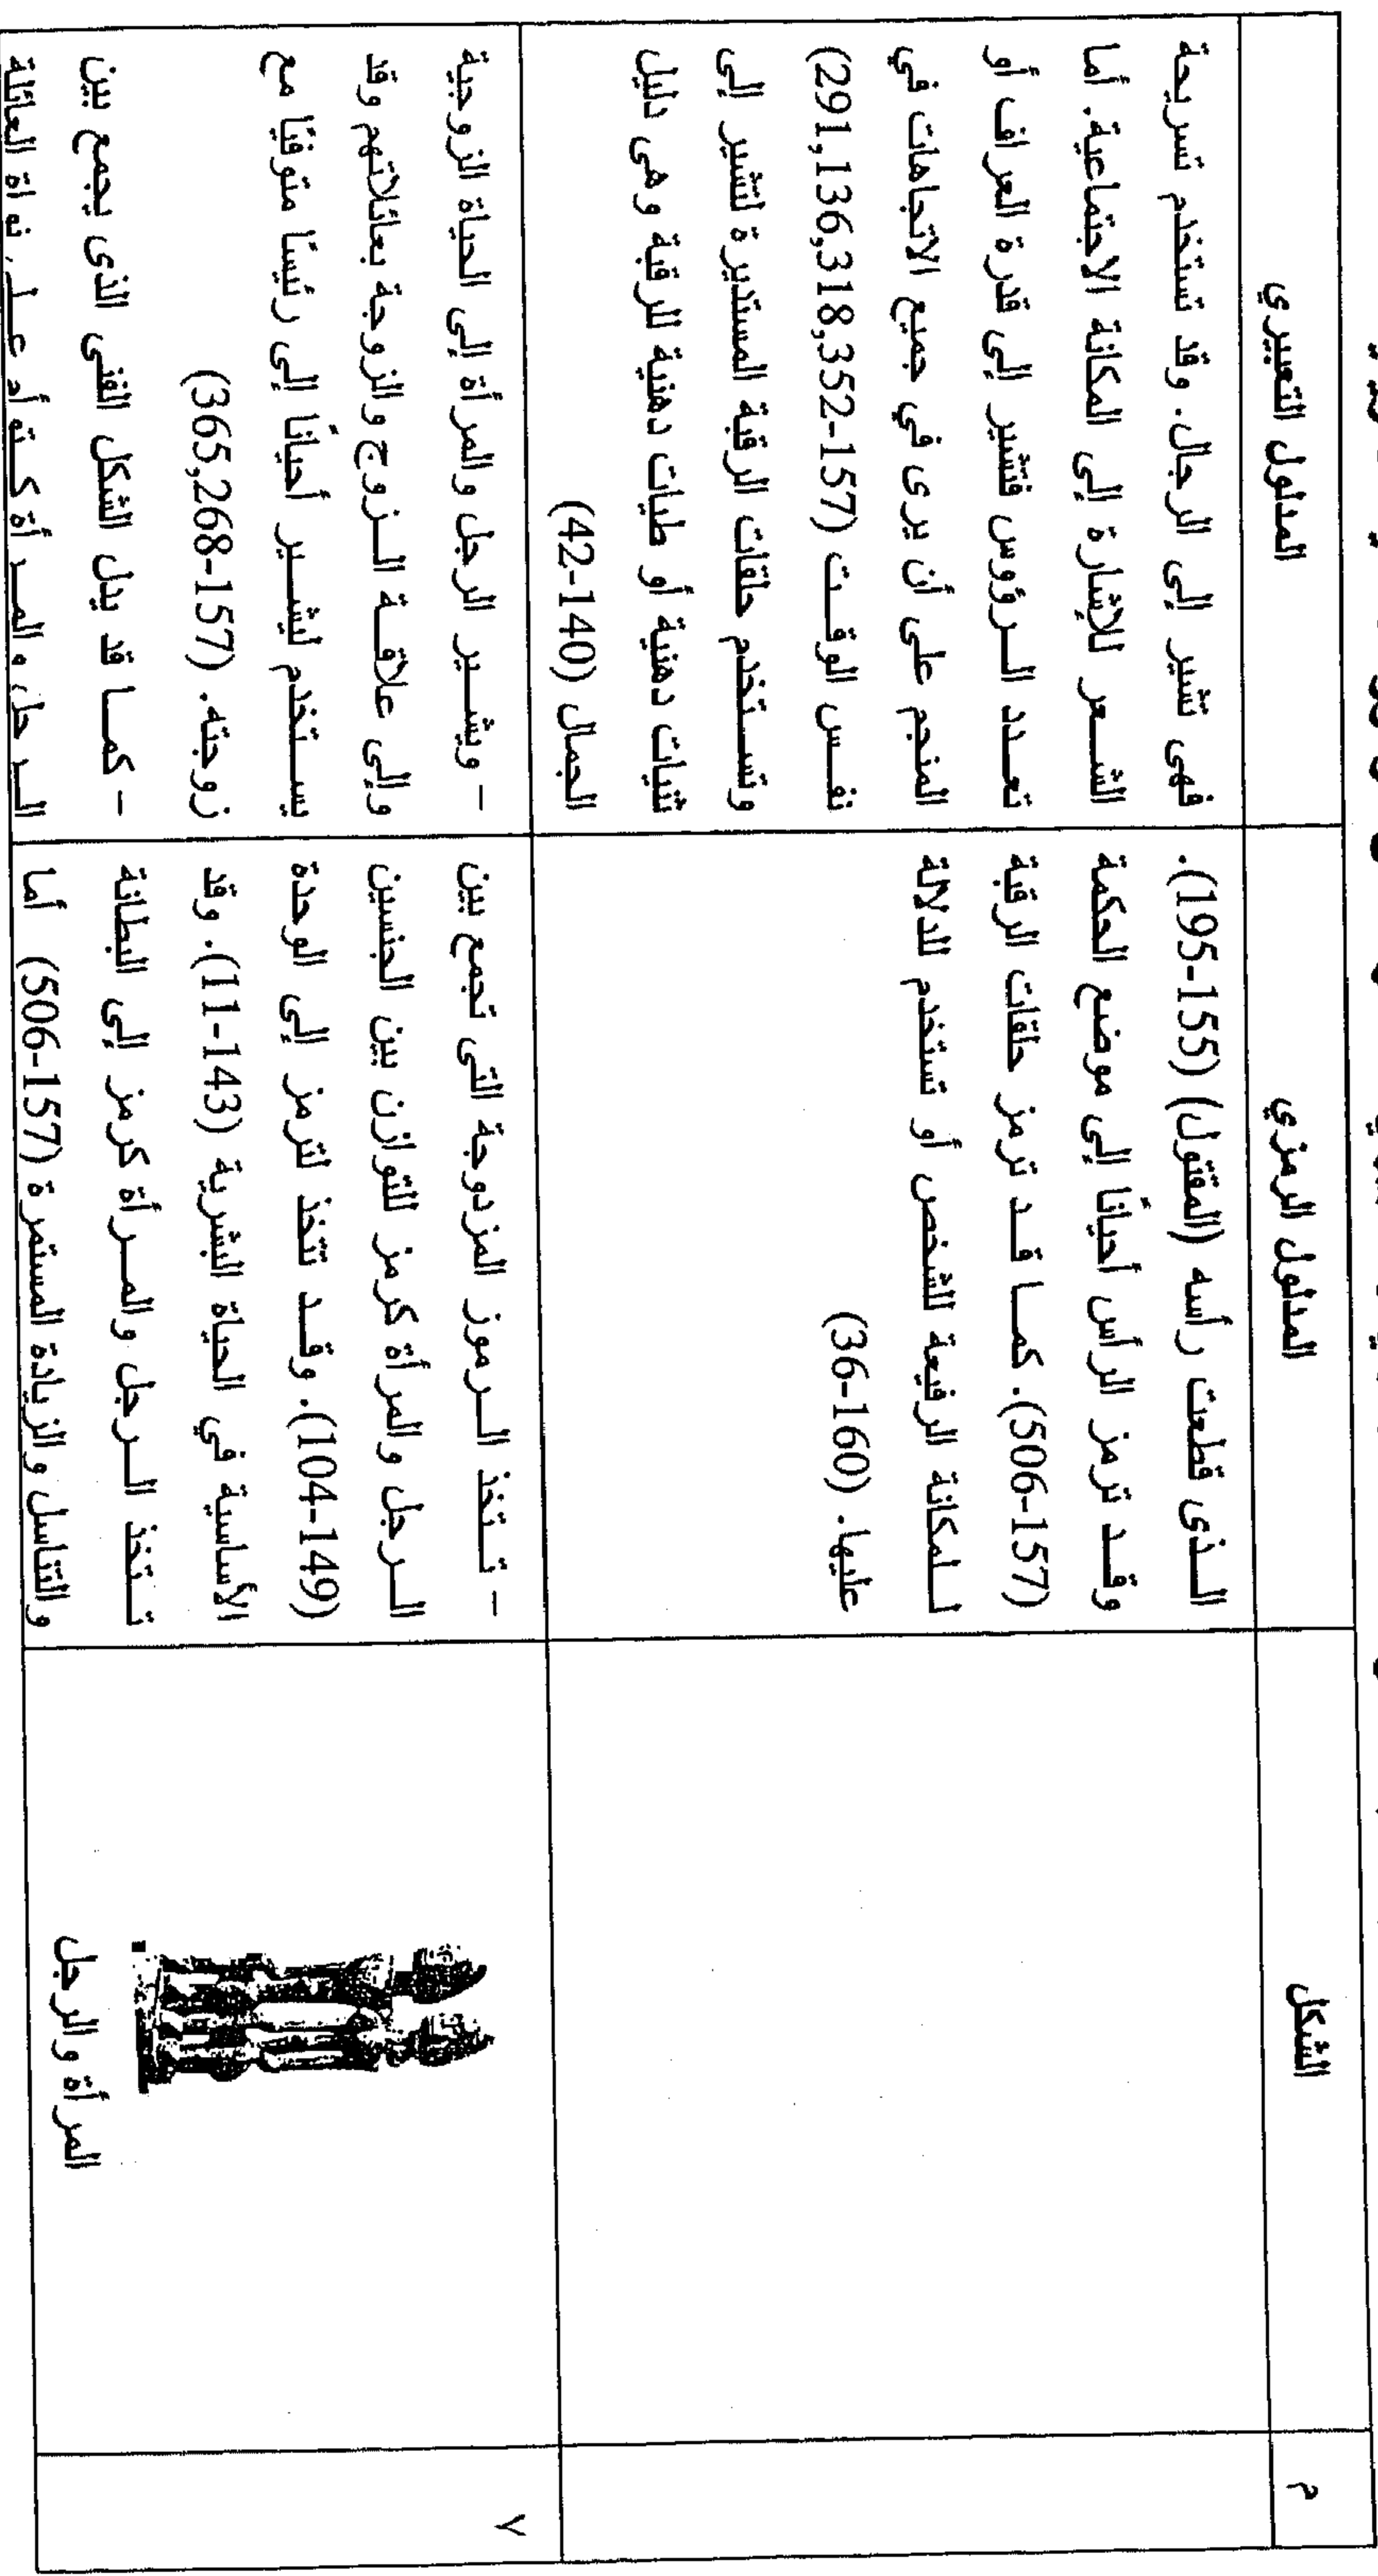 م
الشكل
المدلول الرمزي
المدلول التعبيري
الـذى قطعت رأسه (المقتول) (155-195).
وقـد ترمز الرأس أحيانًا إلى موضع الحكمة
(157-506). كمـا قـد ترمز حلقات الرقبة
لـلمكانة الرفيعة للشخص أو تستخدم للدلالة
عليها. (160-36)
فهى تشير إلى الرجال. وقد تستخدم تسريحة
الشـعر للإشارة إلى المكانة الاجتماعية. أما
تعـدد الـرؤوس فتشير إلى قدرة العراف أو
المنجم على أن يرى في جميع الاتجاهات في
نفـس الوقـت (157-291,136,318,352)
وتسـتخدم حلقات الرقبة المستديرة لتشير إلى
ثنيات دهنية أو طيات دهنية للرقبة وهى دليل
الجمال (140-42)
٧
المرأة والرجل
- تـتخذ الـرموز المزدوجة التى تجمع بين
الـرجل والمرأة كرمز للتوازن بين الجنسين
(149-104). وقـد تتخذ لترمز إلى الوحدة
الأساسية في الحياة البشرية (143-11). وقد
تـتخذ الـرجل والمـرأة كرمز إلى البطانة
والتناسل والزيادة المستمرة (157-506) أما
- ويشـير الرجل والمرأة إلى الحياة الزوجية
وإلى علاقـة الـزوج والزوجة بعائلاتهم وقد
يسـتخدم ليشـير أحيانًا إلى رئيسًا متوفيًا مع
زوجته. (157-365,268)
- كمـا قد يدل الشكل الفنى الذى يجمع بين
الـرجل والمـرأة كـتوأم عـلى نواة العائلة